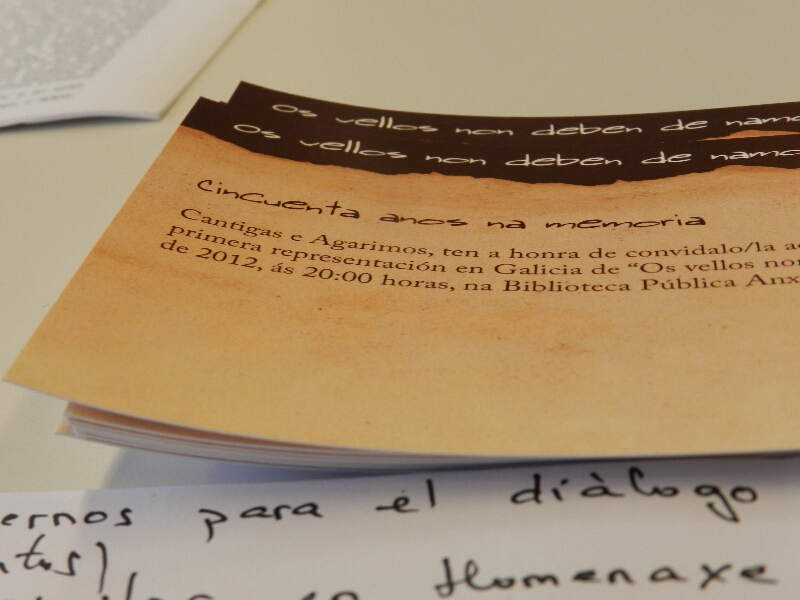 os vellos non deben de
os vellos non deben de
cincuenta anos na memoria
Cantigas e Agarimos, ten a honra de convidalo/la
primera representación en Galicia de "Os vellos
de 2012, ás 20:00 horas, na Biblioteca Pública
para el diálogo
Homenaxe